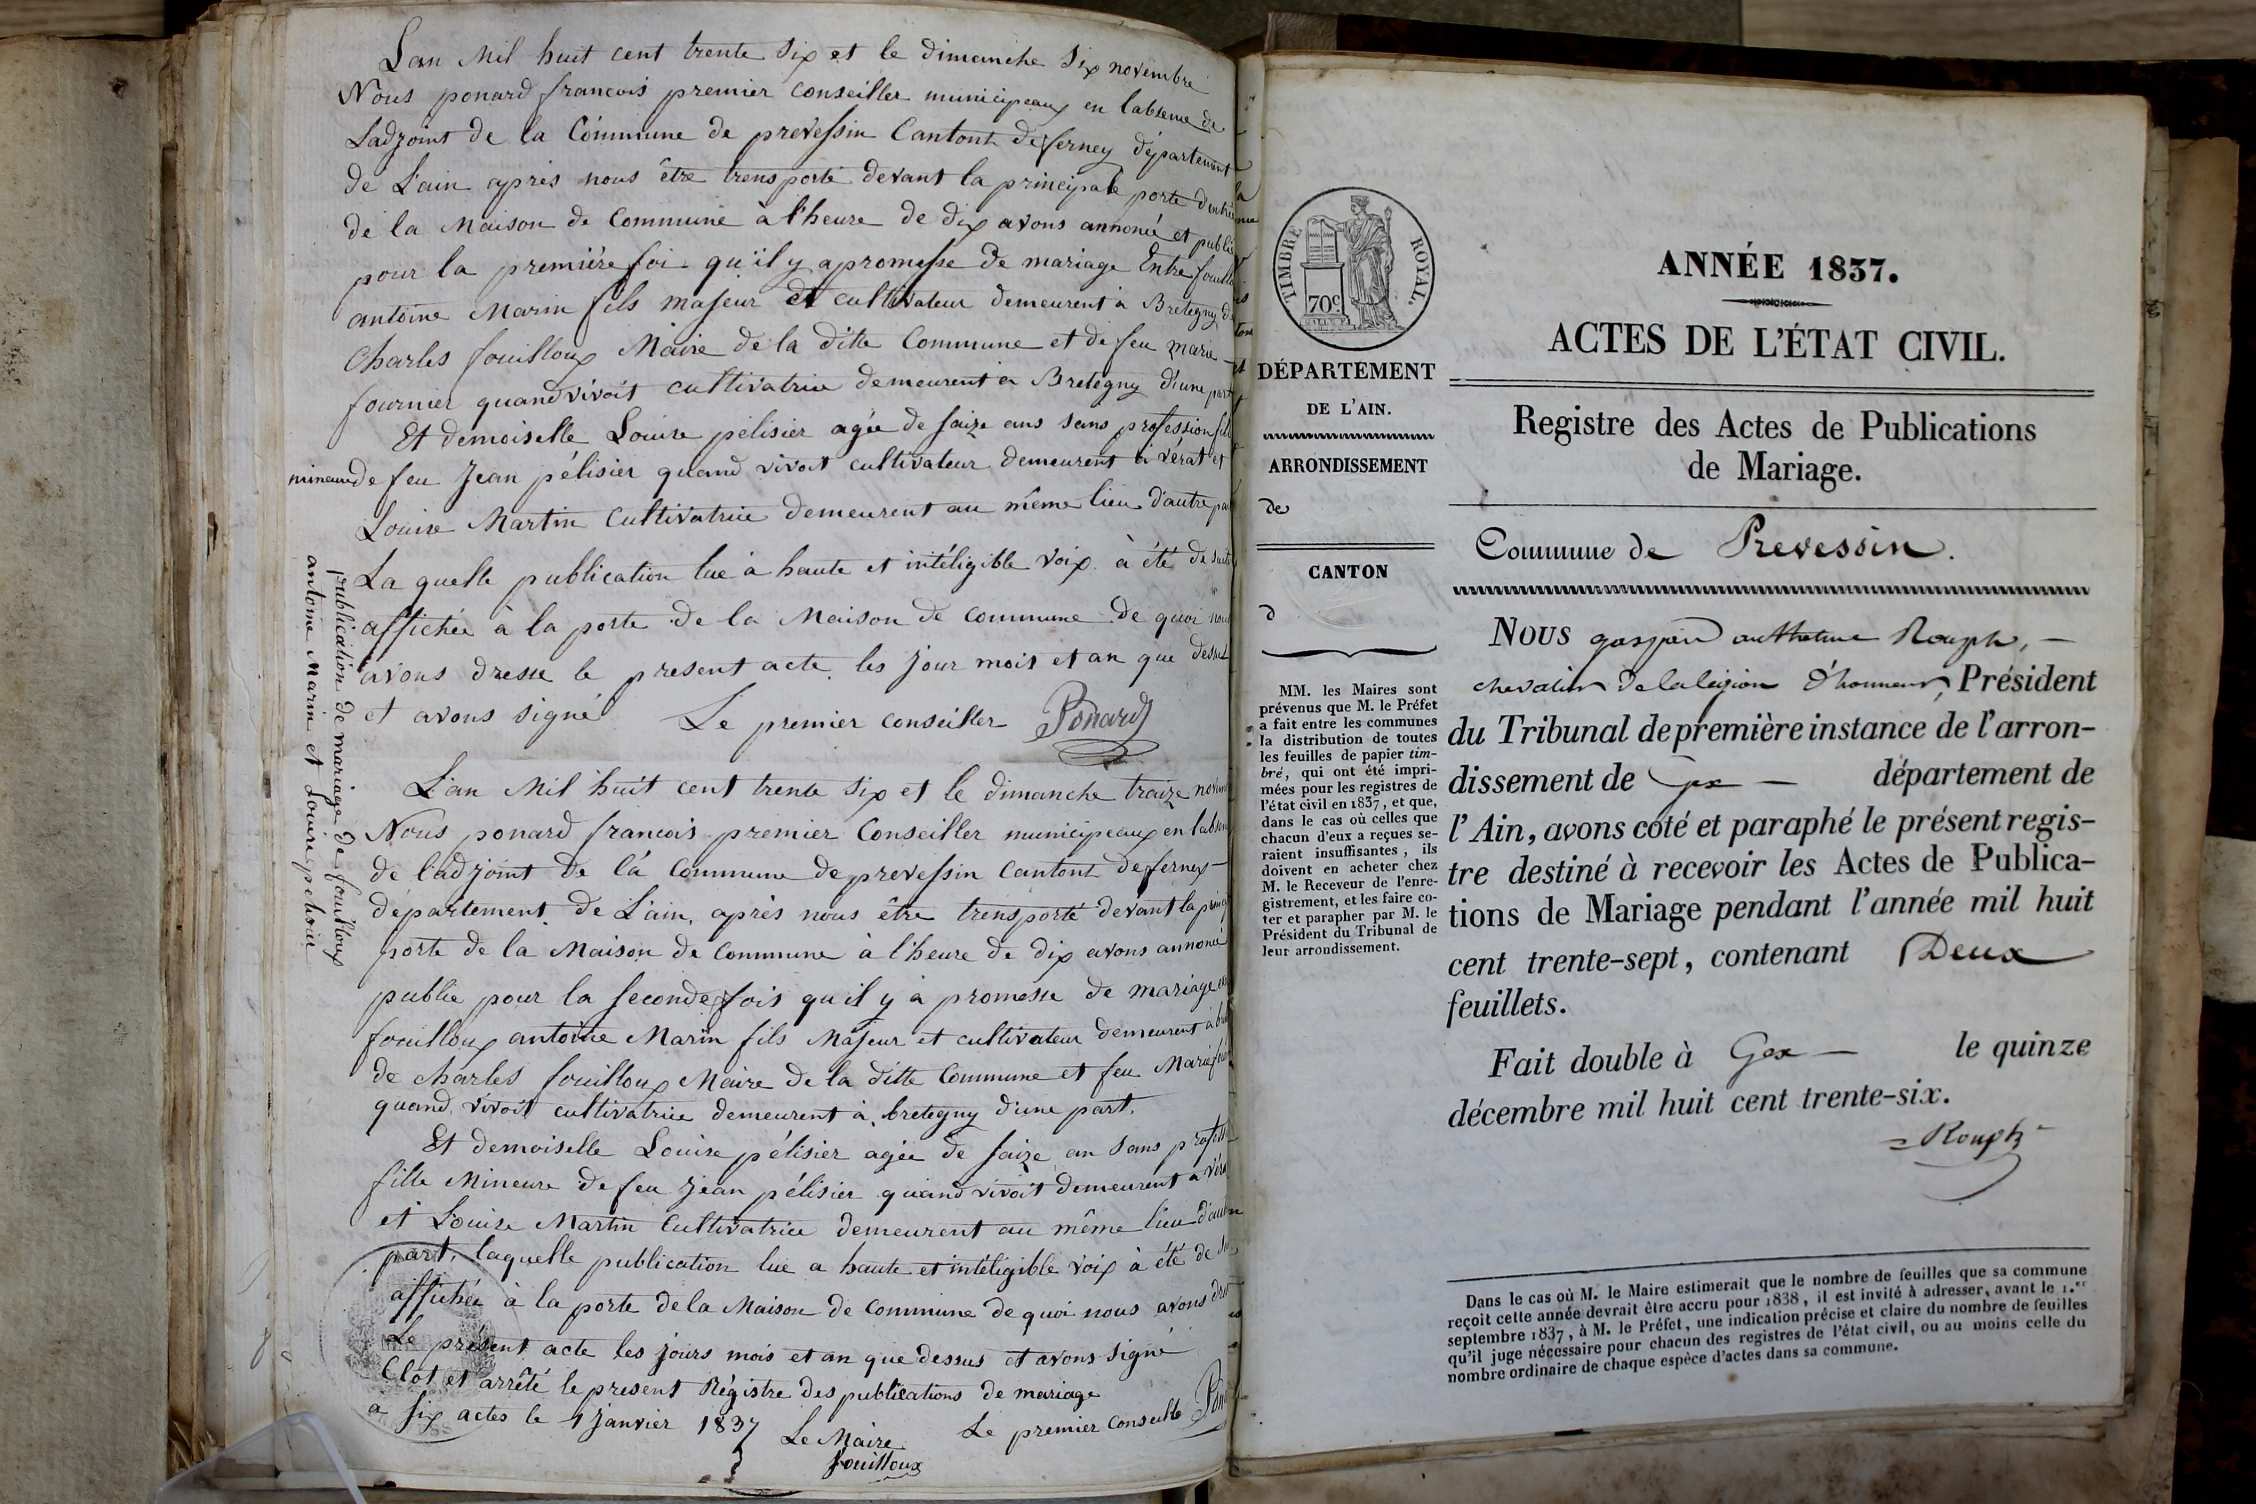 Lan Mil huit cent trente six et le dimanche six novembre
Nous ponard francois premier conseiller municipeaux en labsence de
Ladjoint de la Commune de prevessin Cantont de ferney département
de L'ain après nous être trensporté devant la principale porte d'entrée
de la Maison de Commune à l'heure de dix avons annoncé et publié
pour la première foi qu'il y a promesse de mariage Entre fouilloux
antoine Marin fils majeur et cultivateur demeurent à Bretegny de
Charles fouilloux Maire de la ditte Commune et de feu marie
fournier quand vivoit cultivatrice demeurent à Bretegny d'une part
Et demoiselle Louise pélisier agée de saize ans sans profession fille
mineure de feu Jean pélisier quand vivoit cultivateur demeurent à vérat et
Louise Martin Cultivatrice demeurent au même lieu d'autre part
La quelle publication lue à haute et intéligible voix à été de suite
affichée à la porte de la Maison de commune de quoi nous
avons dresse le present acte les jour mois et an que dessus
et avons signé Le premier conseiller Ponard
publication de mariage de fouilloux
antoine Marin et Louise pelisier
L'an Mil huit cent trente six et le dimanche traize
Nous ponard francois premier Conseiller municipeaux en
de l'adjoint de la Commune de prevessin Cantont de ferney
département de L'ain, après nous être trensporté devant la
porte de la Maison de Commune à l'heure de dix avons annoncé
publie pour la seconde fois qu'il y a promesse de mariage
fouilloux antoine Marin fils Majeur et cultivateur demeurent à
de charles fouilloux Maire de la ditte Commune et feu Marie
quand vivoit cultivatrice demeurent à bretegny d'une part.
Et demoiselle Louise pélisier agée de saize an sans
fille Mineure de feu jean pélisier quand vivoit demeurent a
et Louise Martin Cultivatrice demeurent au même lieu
part, laquelle publication lue a haute et intéligible voix à été de
affichée à la porte de la Maison de Commune de quoi nous avons
Le présent acte les jours mois et an que dessus et avons signé
Clot et arrêté le present Régistre des publications de mariage
a six actes le 1 janvier 1837
Le Maire Le premier conseille
fouilloux
TIMBRE ROYAL.
70c
DÉPARTEMENT
DE L'AIN.
ARRONDISSEMENT
de
CANTON
d
MM. les Maires sont
prévenus que M. le Préfet
a fait entre les communes
la distribution de toutes
les feuilles de papier tim-
bré, qui ont été impri-
mées pour les registres de
l'état civil en 1837, et que,
dans le cas où celles que
chacun d'eux a reçues se-
raient insuffisantes, ils
doivent en acheter chez
M. le Receveur de l'enre-
gistrement, et les faire co-
ter et parapher par M. le
Président du Tribunal de
leur arrondissement.
ANNÉE 1837.
ACTES DE L'ÉTAT CIVIL.
Registre des Actes de Publications
de Mariage.
Commune de Prevessin.
Nous gaspard anthelme Rouph,
chevalier de la légion d'honneur, Président
du Tribunal de première instance de l'arron-
dissement de Gex département de
l'Ain, avons coté et paraphé le présent regis-
tre destiné à recevoir les Actes de Publica-
tions de Mariage pendant l'année mil huit
cent trente-sept, contenant Deux
feuillets.
Fait double à Gex le quinze
décembre mil huit cent trente-six.
Rouph
Dans le cas où M. le Maire estimerait que le nombre de feuilles que sa commune
reçoit cette année devrait être accru pour 1838, il est invité à adresser, avant le 1.er
septembre 1837, à M. le Préfet, une indication précise et claire du nombre de feuilles
qu'il juge nécessaire pour chacun des registres de l'état civil, ou au moins celle du
nombre ordinaire de chaque espèce d'actes dans sa commune.